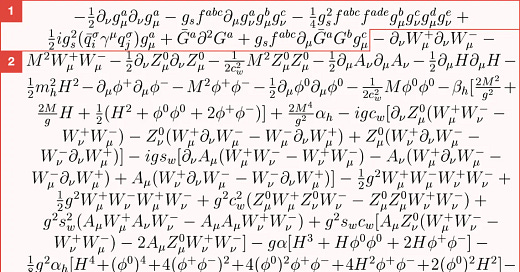 1
−½∂_νg^a_μ∂_νg^a_μ − g_sf^{abc}∂_μg^a_νg^b_μg^c_ν − ¼g²_sf^{abc}f^{ade}g^b_μg^c_νg^d_μg^e_ν +
½ig²_s(q̄^σ_iγ^μq^σ_j)g^a_μ + Ḡ^a∂²G^a + g_sf^{abc}∂_μḠ^aG^bg^c_μ − ∂_νW^+_μ∂_νW^-_μ −
2
M²W^+_μW^-_μ − ½∂_νZ^0_μ∂_νZ^0_μ − \frac{1}{2c²_w}M²Z^0_μZ^0_μ − ½∂_μA_ν∂_μA_ν − ½∂_μH∂_μH −
½m²_hH² − ∂_μφ^+∂_μφ^- − M²φ^+φ^- − ½∂_μφ^0∂_μφ^0 − \frac{1}{2c²_w}Mφ^0φ^0 − β_h[\frac{2M²}{g²} +
\frac{2M}{g}H + ½(H² + φ^0φ^0 + 2φ^+φ^-)] + \frac{2M^4}{g²}α_h − igc_w[∂_νZ^0_μ(W^+_μW^-_ν −
W^+_νW^-_μ) − Z^0_ν(W^+_μ∂_νW^-_μ − W^-_μ∂_νW^+_μ) + Z^0_μ(W^+_ν∂_νW^-_μ −
W^-_ν∂_νW^+_μ)] − igs_w[∂_νA_μ(W^+_μW^-_ν − W^+_νW^-_μ) − A_ν(W^+_μ∂_νW^-_μ −
W^-_μ∂_νW^+_μ) + A_μ(W^+_ν∂_νW^-_μ − W^-_ν∂_νW^+_μ)] − ½g²W^+_μW^-_μW^+_νW^-_ν +
½g²W^+_μW^-_νW^+_μW^-_ν + g²c²_w(Z^0_μW^+_μZ^0_νW^-_ν − Z^0_μZ^0_μW^+_νW^-_ν) +
g²s²_w(A_μW^+_μA_νW^-_ν − A_μA_μW^+_νW^-_ν) + g²s_wc_w[A_μZ^0_ν(W^+_μW^-_ν −
W^+_νW^-_μ) − 2A_μZ^0_μW^+_νW^-_ν] − gα[H³ + Hφ^0φ^0 + 2Hφ^+φ^-] −
⅛g²α_h[H^4+(φ^0)^4+4(φ^+φ^-)²+4(φ^0)²φ^+φ^-+4H²φ^+φ^-+2(φ^0)²H²] −